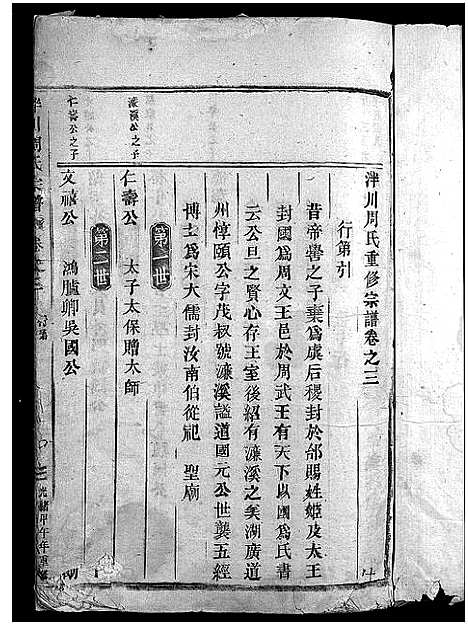 泮川周氏重修宗譜卷之三
行第引
昔帝嚳之子棄爲虞后稷封於邰賜姓姬及太王
封國爲周文王邑於周武王有天下以國爲氏書
云公旦之賢心存王室後紹有濂溪之矣湖廣道
州惇頤公字茂叔號濂溪謚道國元公世襲五經
博士爲宋大儒封汝南伯從祀 聖廟
第一世
濂溪公之子
仁壽公 太子太保贈太師
第二世
仁壽公之子
文 公 鴻臚卿吳國公
川周氏宗譜 卷之三
光緒甲午年重